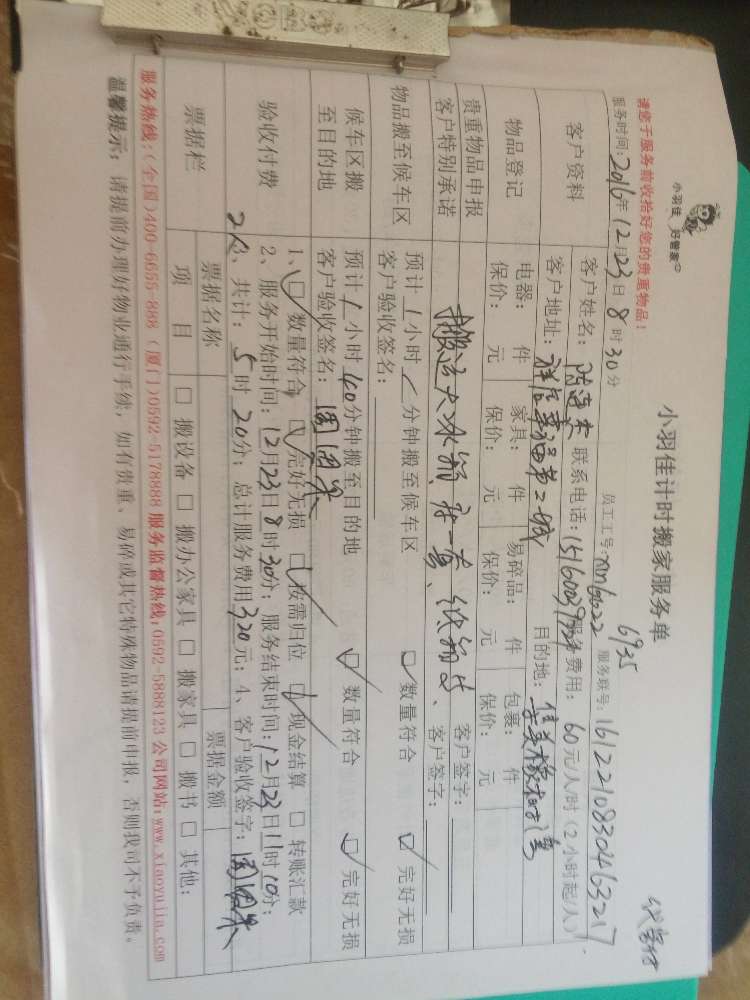 小羽佳 好管家
小羽佳计时搬家服务单
请您于服务前收拾好您的贵重物品！
6935
服务时间：2016年12月23日8时30分 员工工号： 服务联号：
客户资料
客户姓名： 联系电话： 服务费用：60元/人/时（2小时起/人）
客户地址： 目的地：
物品登记
电器： 件 家具： 件 易碎品： 件 包裹： 件
保价： 元 保价： 元 保价： 元 保价： 元
贵重物品申报 客户签字：
客户特别承诺 客户签字：
物品搬至候车区
预计1小时 分钟搬至候车区 □数量符合 □完好无损
客户验收签名：
候车区搬至目的地
预计1小时40分钟搬至目的地 □数量符合 □完好无损
客户验收签名：
验收付费
1、□数量符合 □完好无损 □按需归位 □现金结算 □转账汇款
2、服务开始时间：12月23日8时30分；服务结束时间：12月23日11时10分；
2人3、共计：5时20分；总计服务费用320元；4、客户验收签字：
票据栏
票据名称 票据金额
项目 □搬设备 □搬办公家具 □搬家具 □搬书 □其他：
服务热线：（全国）400-6655-888 （厦门）0592-5178888 服务监督热线：0592-5888123 公司网站：www.xiaoyujia.com
温馨提示：请提前办理好物业通行手续，如有贵重、易碎或其它特殊物品请提前申报，否则我司不予负责。